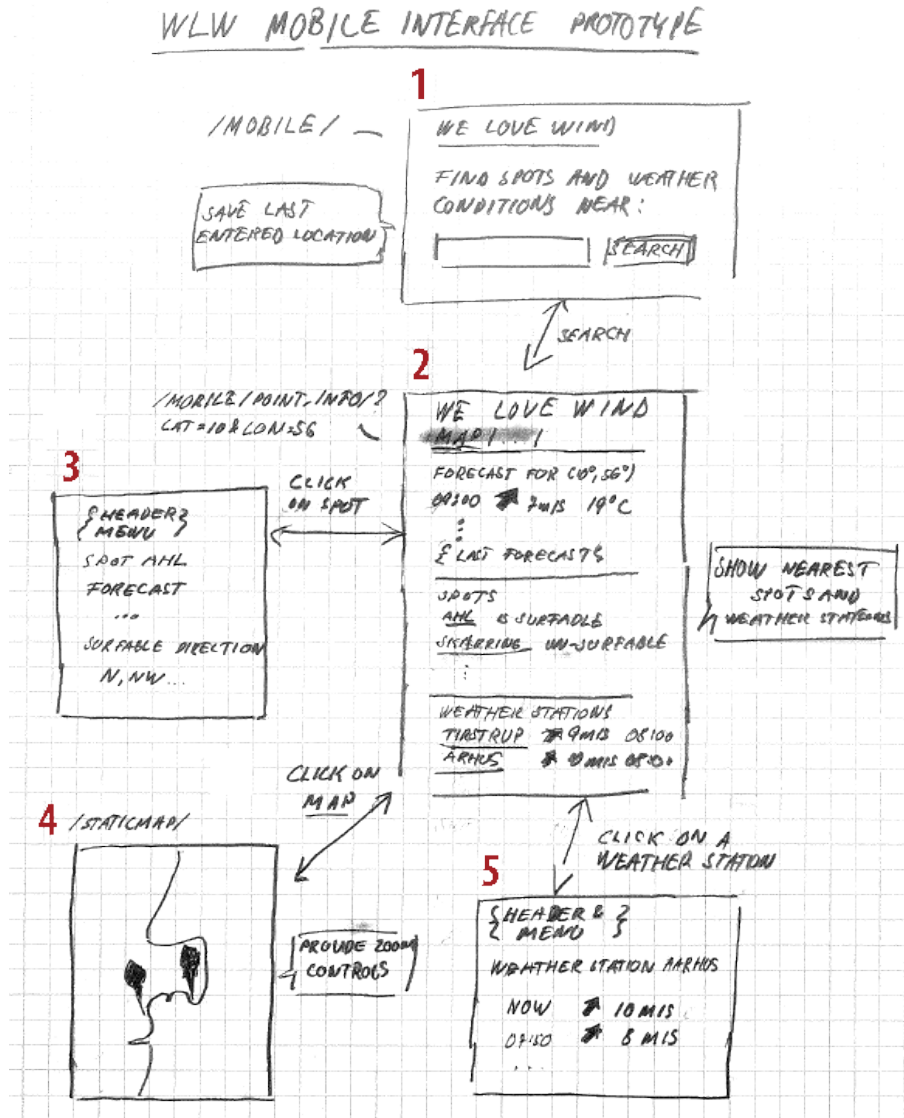 WLW MOBILE INTERFACE PROTOTYPE
1
/MOBILE/
WE LOVE WIND
FIND SPOTS AND WEATHER
CONDITIONS NEAR:
SEARCH
SAVE LAST
ENTERED LOCATION
SEARCH
2
/MOBILE/POINT_INFO/?
LAT=10&LON=56
WE LOVE WIND
MAP | . . . |
FORECAST FOR (10°,56°)
09:00 7m/s 19°C
{LAST FORECASTS}
SPOTS
AHL IS SURFABLE
SKÆRRING UN-SURFABLE
WEATHER STATIONS
TIRSTRUP 9m/s 08:00
ARHUS m/s
SHOW NEAREST
SPOTS AND
WEATHER STATIONS
3
CLICK
ON SPOT
{HEADER}
{MENU}
SPOT AHL
FORECAST
...
SURFABLE DIRECTION
N, NW...
CLICK ON
MAP
4
/STATICMAP/
PROVIDE ZOOM
CONTROLS
CLICK ON A
WEATHER STATION
5
{HEADER & }
{ MENU }
WEATHER STATION AARHUS
NOW 10 M/S
07:50 8 M/S
...